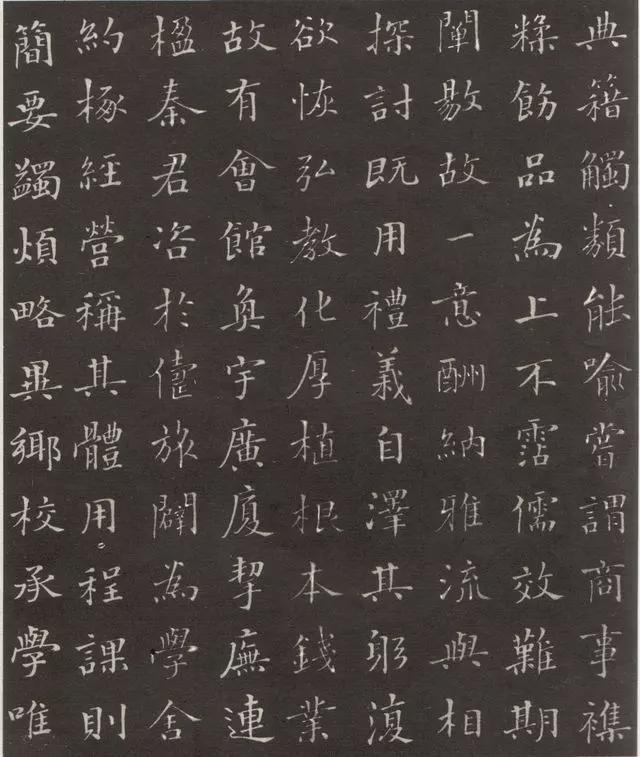 典籍觸類能喻嘗謂商事襍
糅飭品為上不霑儒效難期
闡敭故一意酬納雅流與相
探討既用禮義自澤其躬復
欲恢弘教化厚植根本錢業
故有會館奐宇廣廈挈廡連
楹秦君咨於旅闢為學舍
約椓經營稱其體用程課則
簡要蠲煩略異鄉校承學唯